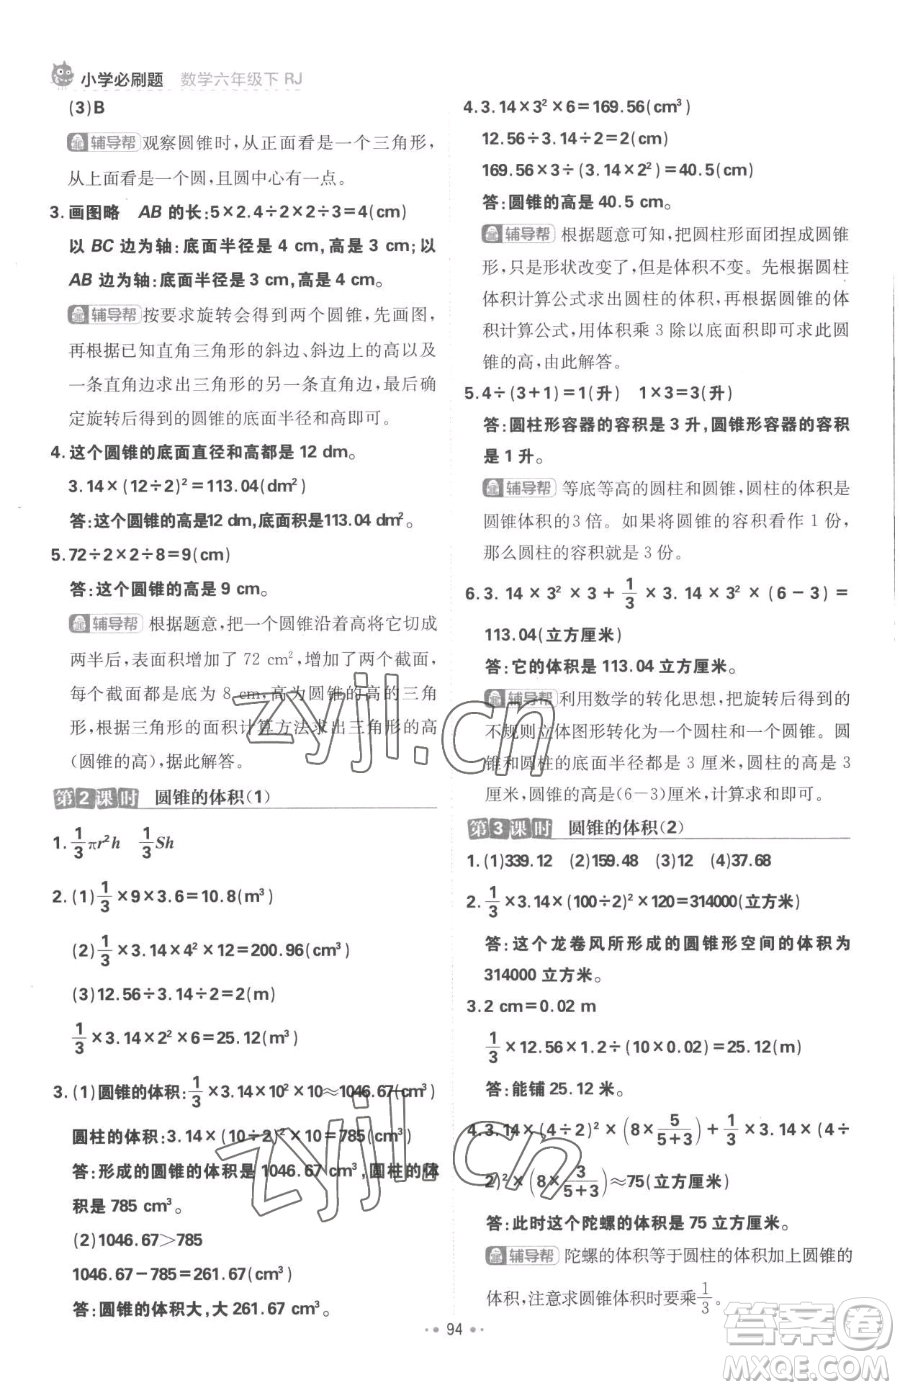 小学必刷题 数学六年级下 RJ
(3)B
辅导帮 观察圆锥时,从正面看是一个三角形,
从上面看是一个圆,且圆中心有一点。
3.画图略 AB 的长:5×2.4÷2×2÷3=4(cm)
以 BC 边为轴:底面半径是 4 cm,高是 3 cm;以
AB 边为轴:底面半径是 3 cm,高是 4 cm。
辅导帮 按要求旋转会得到两个圆锥,先画图,
再根据已知直角三角形的斜边、斜边上的高以及
一条直角边求出三角形的另一条直角边,最后确
定旋转后得到的圆锥的底面半径和高即可。
4.这个圆锥的底面直径和高都是 12 dm。
3.14×(12÷2)²=113.04(dm²)
答:这个圆锥的高是12 dm,底面积是113.04 dm²。
5.72÷2×2÷8=9(cm)
答:这个圆锥的高是 9 cm。
辅导帮 根据题意,把一个圆锥沿着高将它切成
两半后,表面积增加了 72 cm²,增加了两个截面,
每个截面都是底为 8 cm,高为圆锥的高的三角
形,根据三角形的面积计算方法求出三角形的高
(圆锥的高),据此解答。
第2课时 圆锥的体积(1)
1. 1/3 πr²h 1/3 Sh
2.(1) 1/3 ×9×3.6=10.8(m³)
(2) 1/3 ×3.14×4²×12=200.96(cm³)
(3)12.56÷3.14÷2=2(m)
1/3 ×3.14×2²×6=25.12(m³)
3.(1)圆锥的体积: 1/3 ×3.14×10²×10≈1046.67(cm³)
圆柱的体积:3.14×(10÷2)²×10=785(cm³)
答:形成的圆锥的体积是 1046.67 cm³,圆柱的体
积是 785 cm³。
(2)1046.67>785
1046.67-785=261.67(cm³)
答:圆锥的体积大,大 261.67 cm³。
4.3.14×3²×6=169.56(cm³)
12.56÷3.14÷2=2(cm)
169.56×3÷(3.14×2²)=40.5(cm)
答:圆锥的高是 40.5 cm。
辅导帮 根据题意可知,把圆柱形面团捏成圆锥
形,只是形状改变了,但是体积不变。先根据圆柱
体积计算公式求出圆柱的体积,再根据圆锥的体
积计算公式,用体积乘 3 除以底面积即可求出此圆
锥的高,由此解答。
5.4÷(3+1)=1(升) 1×3=3(升)
答:圆柱形容器的容积是 3 升,圆锥形容器的容积
是 1 升。
辅导帮 等底等高的圆柱和圆锥,圆柱的体积是
圆锥体积的3 倍。如果将圆锥的容积看作 1 份,
那么圆柱的容积就是 3 份。
6.3.14×3²×3+ 1/3 ×3.14×3²×(6-3)=
113.04(立方厘米)
答:它的体积是 113.04 立方厘米。
辅导帮 利用数学的转化思想,把旋转后得到的
不规则立体图形转化为一个圆柱和一个圆锥。圆
锥和圆柱的底面半径都是 3 厘米,高分别是 3
厘米,厘米(6-3)厘米,计算求和即可。
第3课时 圆锥的体积(2)
1.(1)339.12 (2)159.48 (3)12 (4)37.68
2. 1/3 ×3.14×(100÷2)²×120=314000(立方米)
答:这个龙卷风所形成的圆锥形空间的体积为
314000 立方米。
3.2 cm=0.02 m
1/3 ×12.56×1.2÷(10×0.02)=25.12(m)
答:能铺 25.12 米。
4.3.14×(4÷2)²×(8× 5/(5+3))+ 1/3 ×3.14×(4÷
2)²×(8× 3/(5+3))≈75(立方厘米)
答:此时这个陀螺的体积是 75 立方厘米。
辅导帮 陀螺的体积等于圆柱的体积加上圆锥的
体积,注意求圆锥体积时要乘 1/3 。
94
zyjl.cn
zyjl.cn
答案圈
MXQE.COM